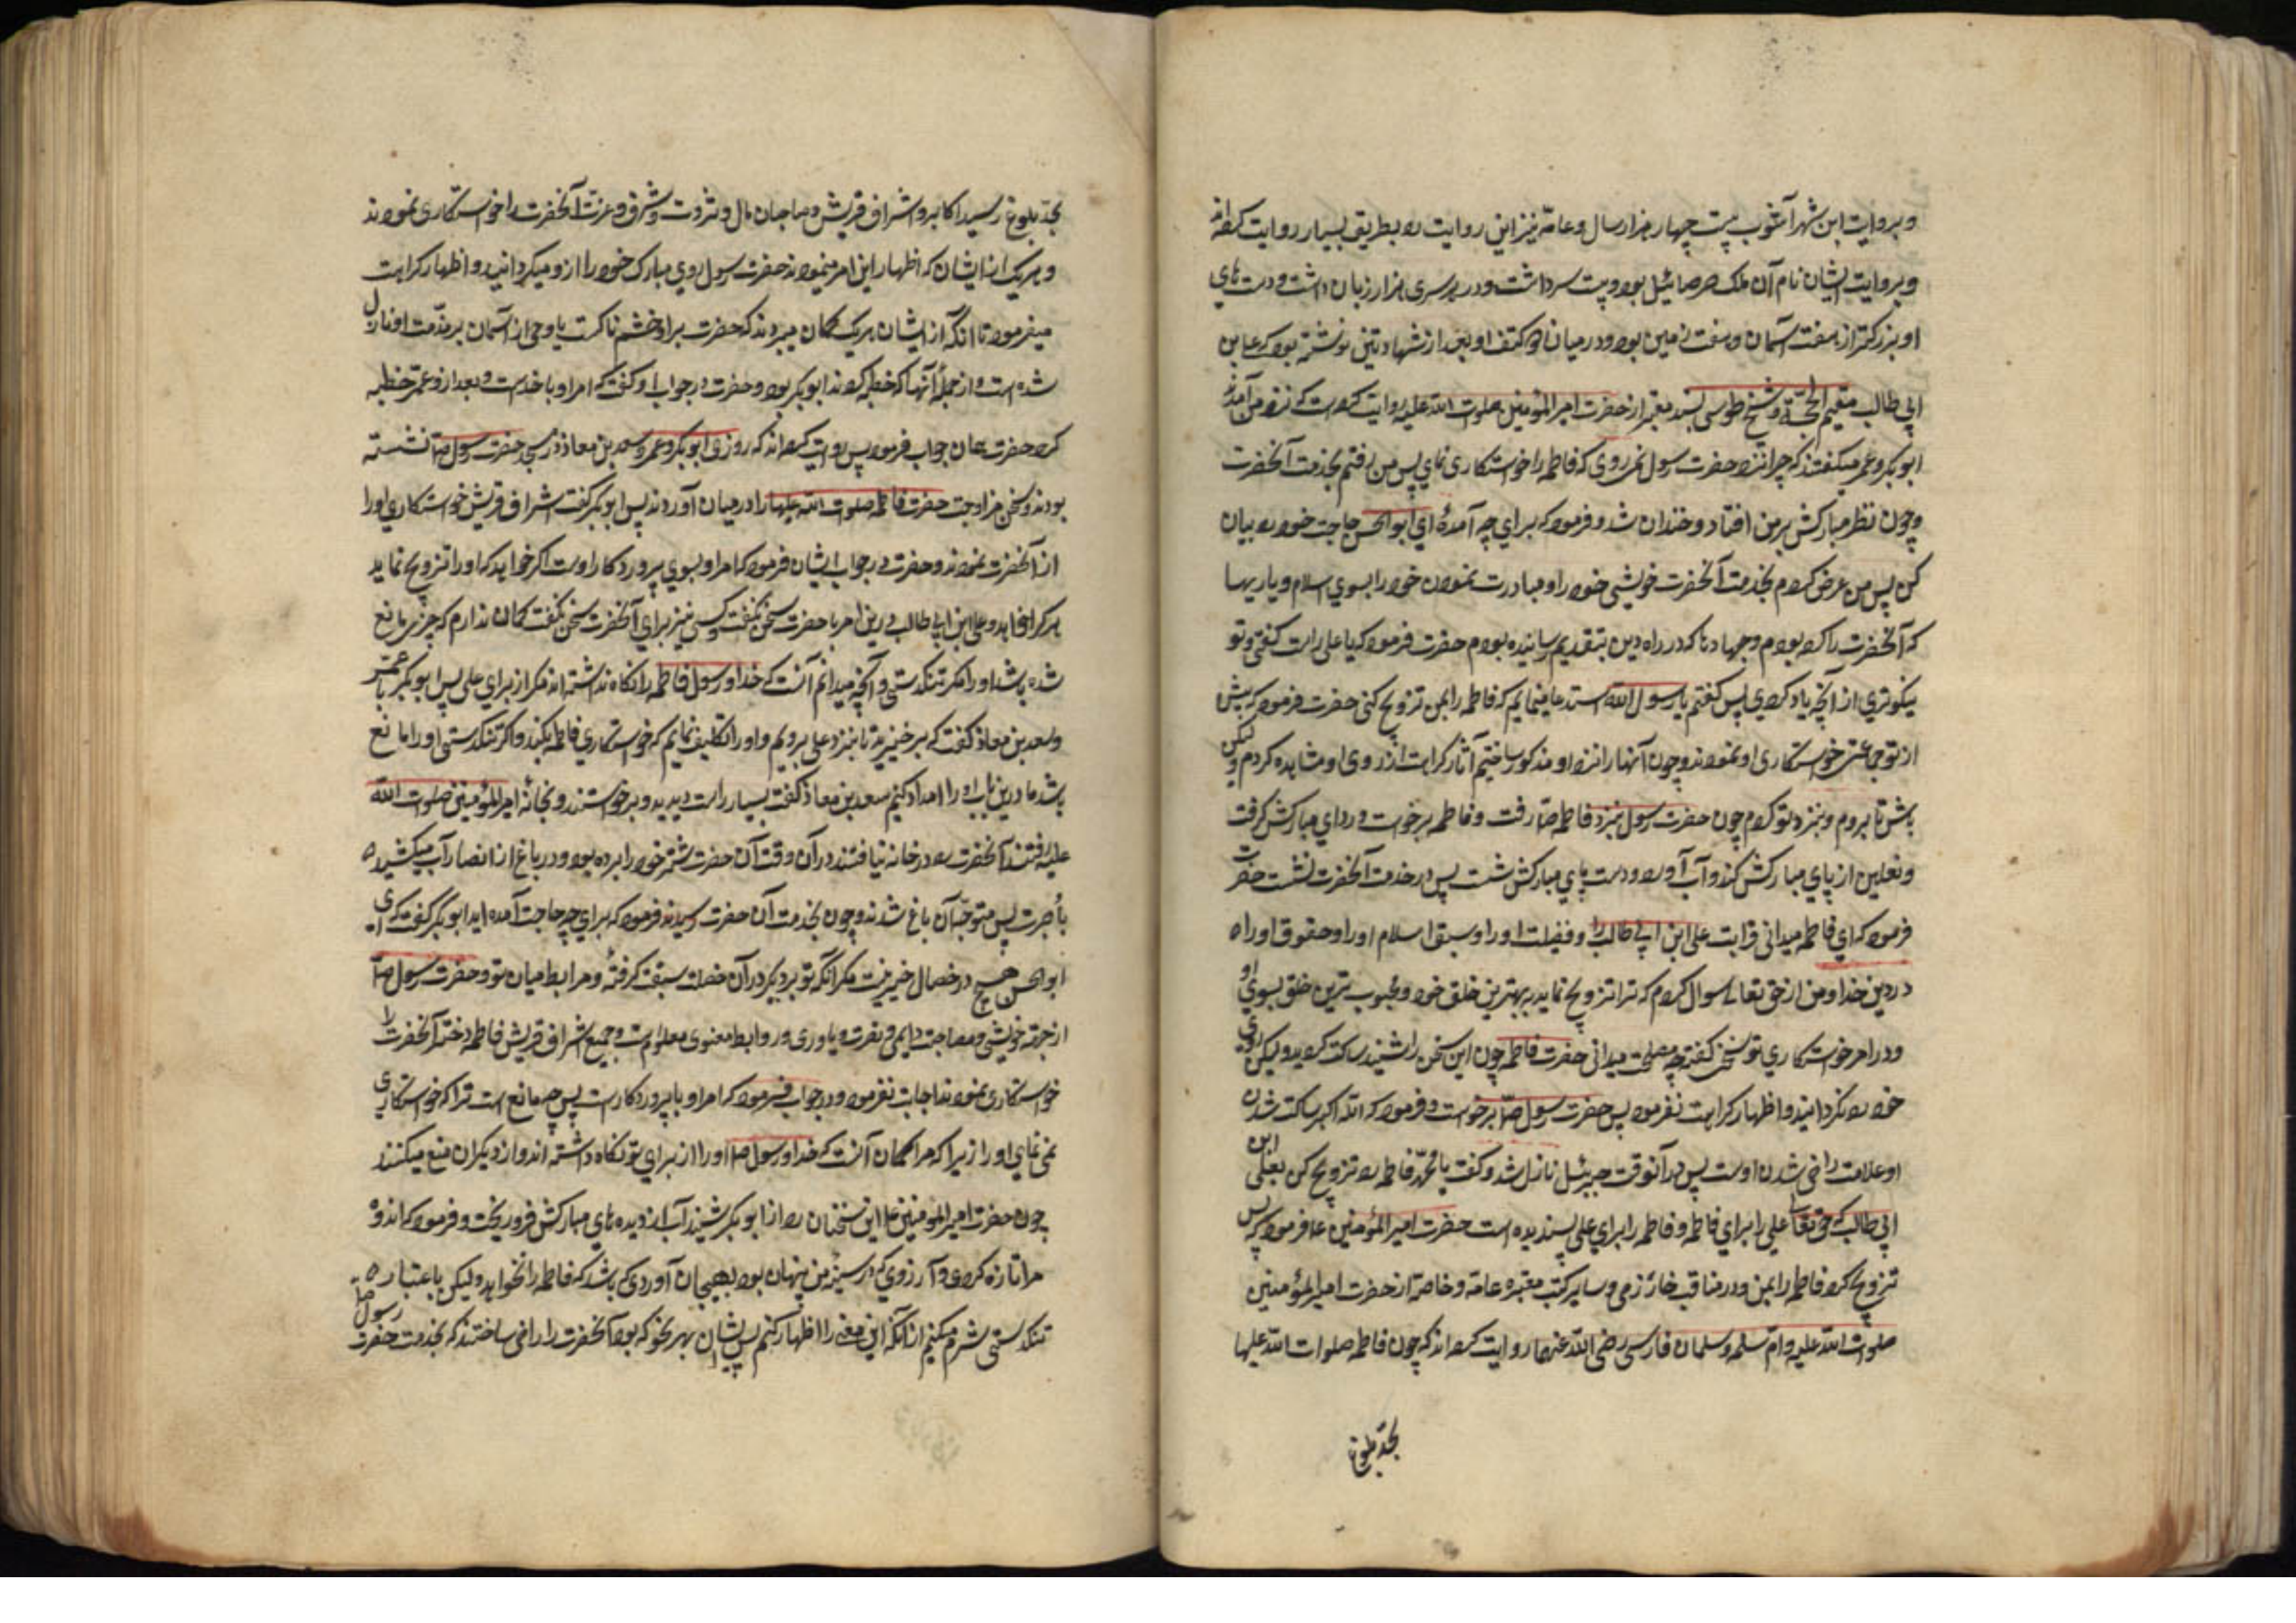 و بروایت ابن شهر آشوب بیست چهار هزار سال و عامّه نیز این روایت را بطریق بسیار روایت کرده‌اند
و بروایت ایشان نام آن ملک صرصائیل بود و بیست سر داشت و در هر سری هزار زبان داشت و دست های
او بزرگتر از هفت آسمان و هفت زمین بود و در میان دو کتف او بعد از شهادتین نوشته بود که علی بن
ابی طالب مقیم الحجّة و شیخ طوسی بسند معتبر از حضرت امیر المؤمنین صلوات الله علیه روایت کرده است که نزد من آمدند
ابو بکر و عمر میگفتند که چرا نزد حضرت رسول نمی روی که فاطمه را خواستکاری نمای پس من رفتم بخدمت آنحضرت
و چون نظر مبارکش بر من افتاد و خندان شد و فرمود که برای چه آمدهٔ ای ابو الحسن حاجت خود را بیان
کن پس من عرض کردم بخدمت آنحضرت خویشی خود را و مبادرت نمودن خود را بسوی اسلام و یاریها
که آنحضرت را کرده بودم و جهادها که در راه دین بتقدیم رسانیده بودم حضرت فرمود که یا علی راست گفتی و تو
نیکوتری از آنچه یاد کردی پس گفتم یا رسول الله استدعا مینمایم که فاطمه را بمن تزویج کنی حضرت فرمود که پیش
از تو جماعتی خواستکاری او نمودند و چون آنها را نزد او مذکور ساختیم آثار کراهت از روی او مشاهده کردم و لیکن
باش تا بروم و بنزد تو آیم چون حضرت رسول بنزد فاطمه صا رفت و فاطمه برخواست و ردای مبارکش گرفت
و نعلین از پای مبارکش کند و آب آورد و دست و پای مبارکش شست پس در خدمت آنحضرت نشست حضرت
فرمود که ای فاطمه میدانی قرابت علی ابن ابی طالب را و فضیلت او را و سبق اسلام او را و حقوق او را
در دین خدا و من از حق تعالی سوال کردم که ترا تزویج نماید به بهترین خلق خود و محبوب ترین خلق بسوی او
و در امر خواستکاری تو سخن گفته چه مصلحت میدانی حضرت فاطمه چون این سخن را شنید ساکت گردید و لیکن روی
خود را نگردانید و اظهار کراهت نفرمود پس حضرت رسول صا برخواست و فرمود که الله اکبر ساکت شدن
او علامت راضی شدن اوست پس در آنوقت جبرئیل نازل شد و گفت یا محمّد فاطمه را تزویج کن بعلی ابن
ابی طالب که حق تعالی علی را برای فاطمه و فاطمه را برای علی پسندیده است حضرت امیر المؤمنین عا فرمود که پس
تزویج کرد فاطمه را بمن و در مناقب خارزمی و سایر کتب معتبره عامه و خاصه از حضرت امیر المؤمنین
صلوات الله علیه و ام سلمه و سلمان فارسی رضی الله عنهما روایت کرده‌اند که چون فاطمه صلوات الله علیها
بحدّ بلوغ
بحدّ بلوغ رسید اکابر و اشراف قریش و صاحبان مال و ثروت و شرف و عزت آنحضرت را خواستکاری نمودند
و هر یک از ایشان که اظهار این امر مینمودند حضرت رسول روی مبارک خود را از او میگردانید و اظهار کراهت
میفرمود تا انکه از ایشان هر یک گمان میبردند که حضرت بر او خشم ناکست یا وحی از آسمان بر مذمت او نازل
شده است و از جمله آنها که خطبه کردند ابو بکر بود و حضرت در جواب او گفت که امر او با خداست و بعد از او عمر خطبه
کرد حضرت همان جواب فرمود پس روایت کرده‌اند که روزی ابو بکر و عمر و سعد بن معاذ در مسجد حضرت رسول صا نشسته
بودند و سخن مزاوجت حضرت فاطمه صلوات الله علیها را در میان آوردند پس ابو بکر گفت اشراف قریش خواستکاری او را
از آنحضرت نمودند و حضرت در جواب ایشان فرمود که امر او بسوی پروردکار اوست اگر خواهد که او را تزویج نماید
هر کرا خواهد و علی ابن ابی طالب در این امر با حضرت سخن نگفت و کسی نیز برای آنحضرت سخن نگفت گمان ندارم که چیزی مانع
شده باشد او را مگر تنگدستی و آنچه میدانم آنست که خدا و رسول فاطمه را نگاه نداشته‌اند مگر از برای علی پس ابو بکر با عمر
و سعد بن معاذ گفت که برخیزید تا بنزد علی برویم و او را تکلیف نمایم که خواستکاری فاطمه بکند و اگر تنگدستی او را مانع
باشد ما درین باب او را امداد کنیم سعد بن معاذ گفت بسیار راست دیدید و برخواستند و بخانهٔ امیر المؤمنین صلوات الله
علیه رفتند آنحضرت را در خانه نیافتند در آن وقت آن حضرت شتر خود را برده بود و در باغ از انصار آب میکشید
بأجرت پس متوجه آن باغ شدند و چون بخدمت آن حضرت رسیدند فرمود که برای چه حاجت آمده اید ابو بکر گفت که ای
ابو الحسن هیچ در خصال خیر نیست مگر انکه تو بر دیگر در آن خصلت سبقت گرفتهٔ و مرابط میان تو و حضرت رسول صا
از جهة خویشی و مصاحبت دایمی و نصرت و یاوری و روابط معنوی معلومست و جمیع اشراف قریش فاطمه دختر آنحضرت را
خواستکاری نمودند اجابت نفرمود و در جواب فرمود که امر او با پروردکارست پس چه مانع است ترا که خواستکاری
نمی نمای او را زیرا که مرا گمان آنست که خدا و رسول صا او را از برای تو نگاه داشته‌اند و از دیگران منع میکنند
چون حضرت امیر المؤمنین عا این سخنان را از ابو بکر شنید آب از دیده های مبارکش فرو ریخت و فرمود که اندوه
مرا تازه کردی و آرزوی که در سینهٔ من پنهان بود بهیجان آوردی که باشد که فاطمه را نخواهد و لیکن باعتبار
تنگدستی شرم میکنم از انکه این معنی را اظهار کنم پس ایشان بهر نحو که بود آنحضرت را راضی ساختند که بخدمت حضرت رسول صا